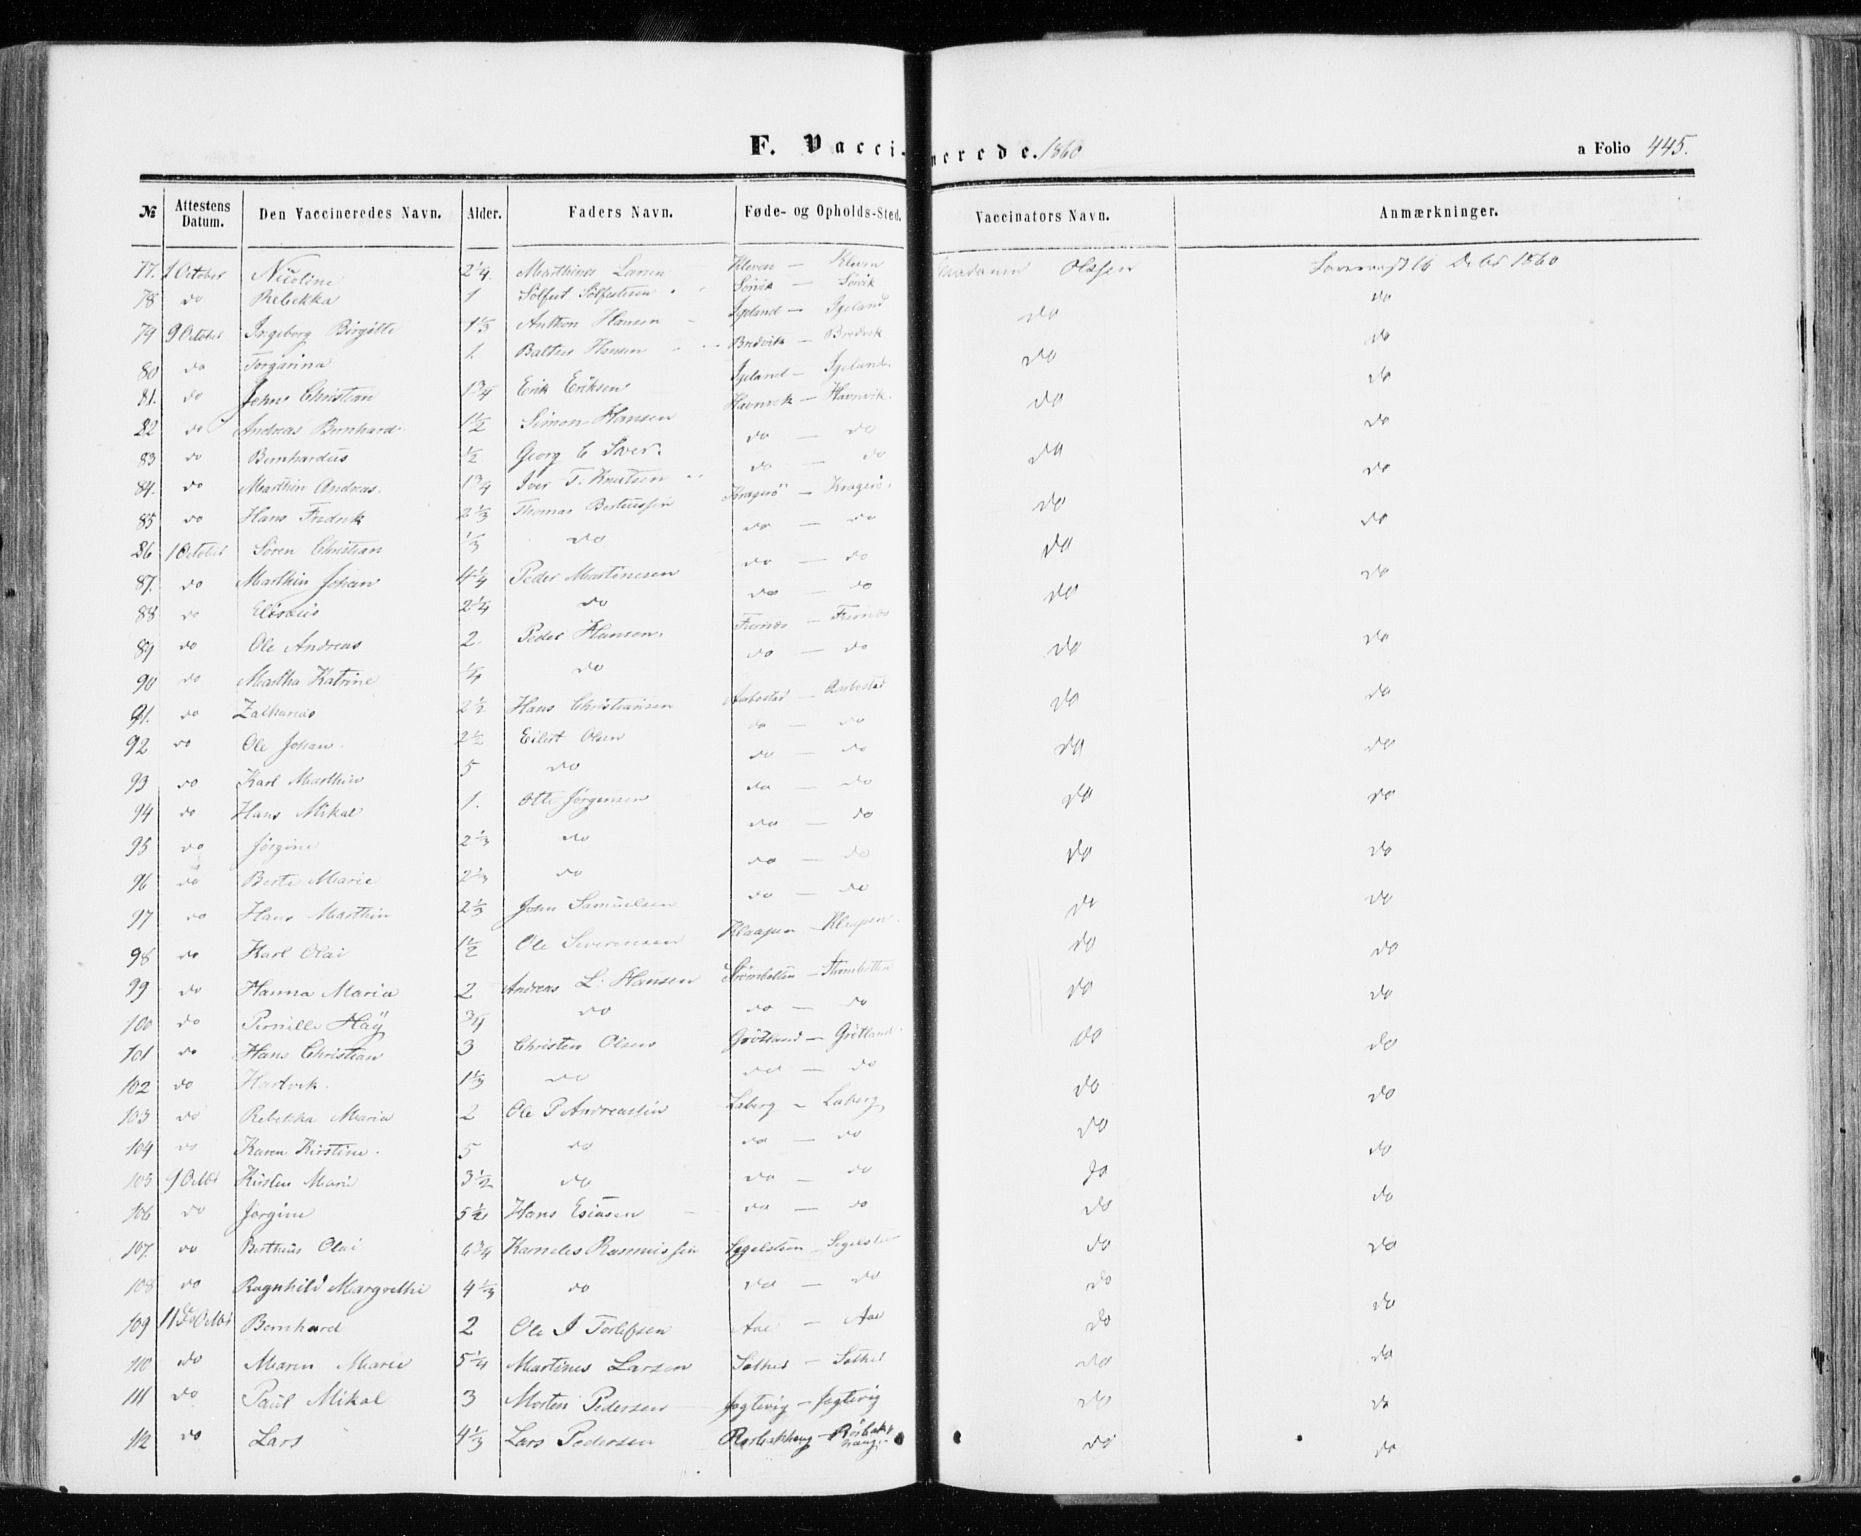 F. Vaccinerede. 1860
a Folio 445.
№ Attestens Datum. Den Vaccineredes Navn. Alder. Faders Navn. Føde- og Opholds-Sted. Vaccinators Navn. Anmærkninger.
77. 1 October Nicoline 2 1/4. Marthines Larsen Kleven — Kleven Madamm Olsen 16 1860
78 do Rebekka 1 Solfest Solfestsen Sørvik — Sørvik do
79 9 October Ingeborg Birgitte 1 1/3 Anthon Hansen Igeland — Igeland do do
80 do Torgarina 1 Baltser Hansen Bredvik — Bredvik do do
81. do John Christian 1 3/4 Erik Eriksen Igeland — Igeland do do
82 do Andreas Bernhard 1 1/2 Simon Hansen Havnvik — Havnvik. do do
83 do Bernhardus 1/2 Georg C do — do do
84. do Marthin Andreas. 1 3/4 Iver T. Knutsen do — do do do
85 do Hans Fredrik 2 1/3 Thomas Berteussen Kragerö — Kragerö do
86 1 October Sören Christian 1/3 do do — do do
87. do Marthin Johan 4 1/4 Peder Martinesen do — do do do
88 do Eliseus 2 1/4 do do — do
89 do Ole Andreas 2 Peder Hansen. Furnes — Furnes do do
90 do Martha Katrine 1/4 do do — do do
91. do Zakharias 2 1/2 Hans Christiansen — do
92 do Ole Johan. 2 1/2 Eilert Olsen do — do do do
93 do Karl Marthin 5 do do — do
94 do Hans Mikal 1. Otte Jørgensen do — do do do
95 do Jørgine 2 1/3 do do — do do do
96 do Berte Marie 2 1/3 do do — do do
97 do Hans Marthin 2 1/3 John Samuelsen do — do do
98 do Karl Olai 1 1/2 Ole Severensen Klaapen — Klaapen. do do
99 do Hanna Maria 2 Andreas L: Hansen Strømbotten — Strømbotten do do
100 do Pernille Høÿ 3/4 do do — do
101 do Hans Christian 3 Christen Olsen Grötland — Grötland. do do
102 do Hartvik. 1 1/3 do do — do do do
103 do Rebekka Maria 2 Ole P Andreassen Laberg — Laberg do
104 do Karen Kirstine. 5 do do — do do
105 9 Octbr Kirsten Marie 3 1/2 do do — do do
106 do Jørgine 5 1/2 Hans Esiasen do — do do do
107. do Bertheus Olai 6 3/4 Kornelis Rasmussen Segelsteen — Segelsteen do do
108 do Ragnhild Margrethe 4 1/3 do do — do do
109 11 Octbr Bernhard 2 Ole J Torlefsen Aae — Aae do do
110 do Maren Marie 5 1/4 Martines Larsen Sother — Sother do do
111 do Paul Mikal 3 Morten Pedersen Jegtevig — Jegtevig do do
112 do Lars 4 1/3 Lars Pedersen Rørbækhaug — Rørbækhaug do do